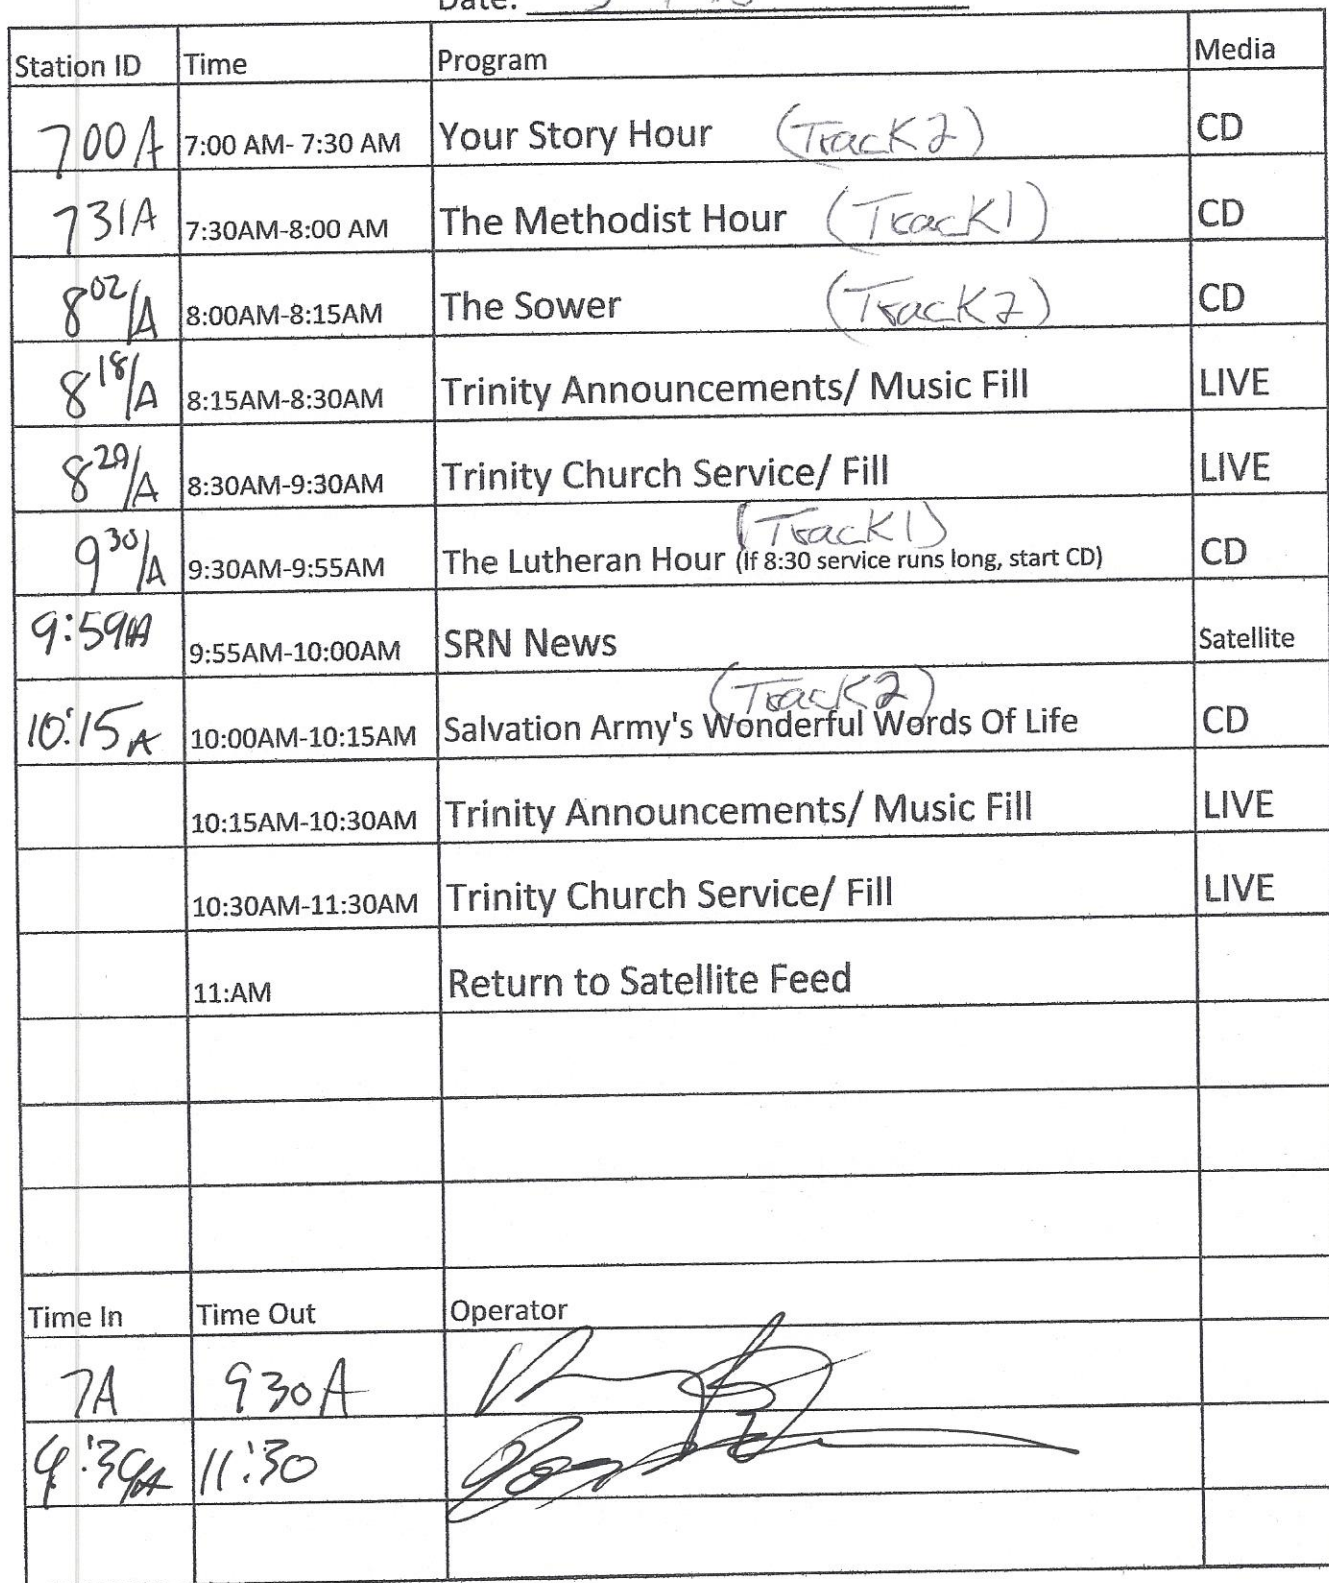 Date:
Station ID Time Program Media
700A 7:00 AM- 7:30 AM Your Story Hour (Track 2) CD
731A 7:30AM-8:00 AM The Methodist Hour (Track 1) CD
8 02/A 8:00AM-8:15AM The Sower (Track 2) CD
8 18/A 8:15AM-8:30AM Trinity Announcements/ Music Fill LIVE
8 29/A 8:30AM-9:30AM Trinity Church Service/ Fill LIVE
(Track 1)
9 30/A 9:30AM-9:55AM The Lutheran Hour (If 8:30 service runs long, start CD) CD
9:59A 9:55AM-10:00AM SRN News Satellite
(Track 2)
10:15A 10:00AM-10:15AM Salvation Army's Wonderful Words Of Life CD
10:15AM-10:30AM Trinity Announcements/ Music Fill LIVE
10:30AM-11:30AM Trinity Church Service/ Fill LIVE
11:AM Return to Satellite Feed
Time In Time Out Operator
7A 930A
11:30